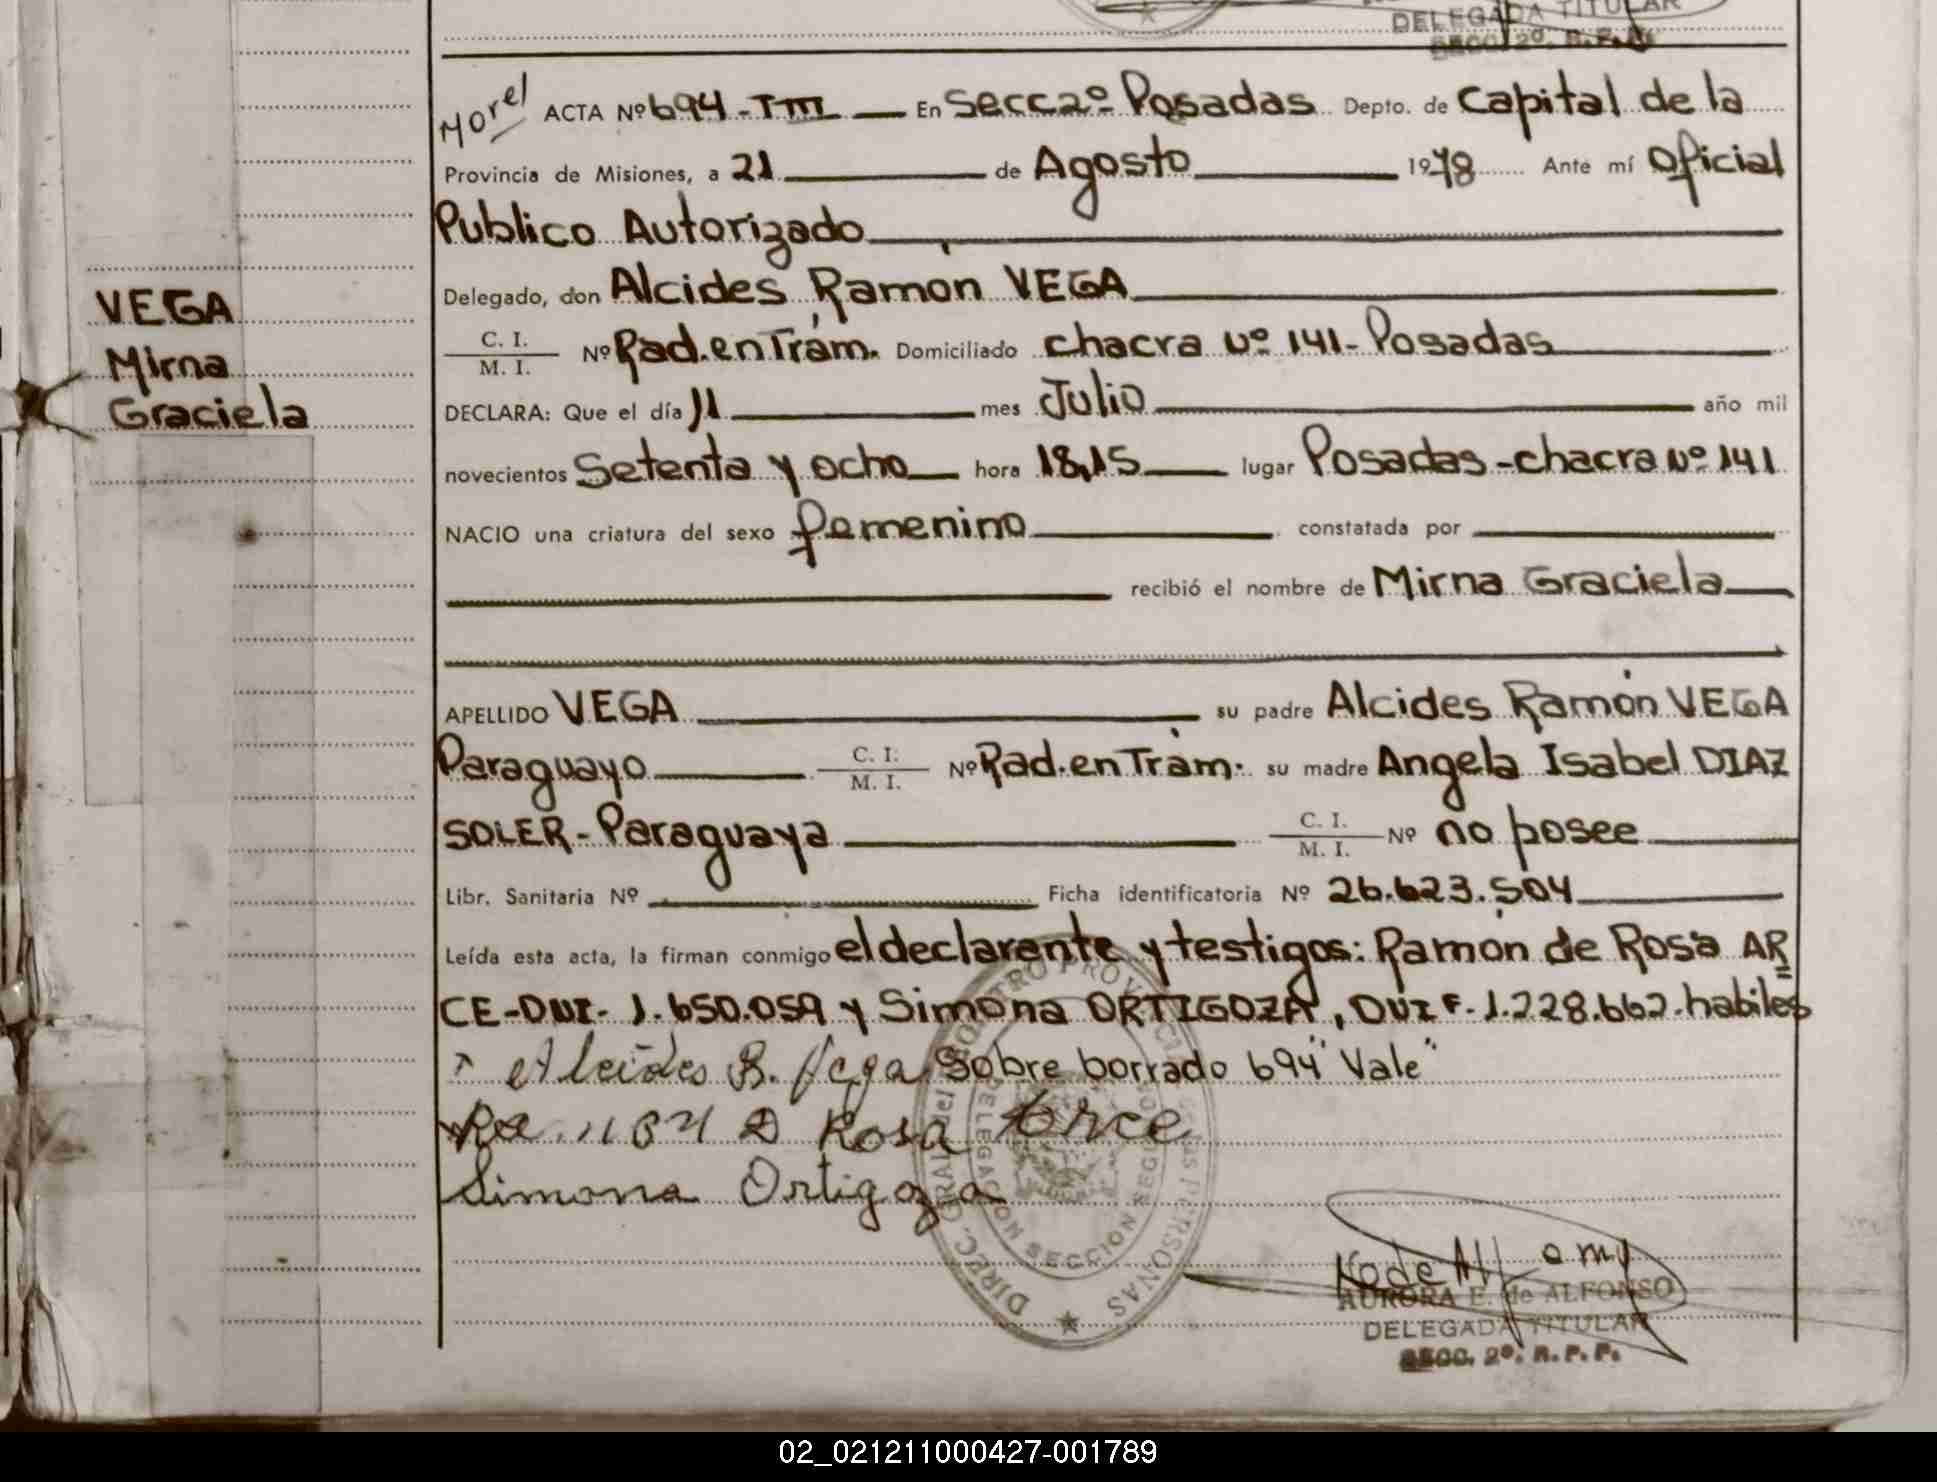 DELEGADA TITULAR
SECC. 2º. R.P.P.
Morel ACTA Nº 694-TIII En Secc 2º Posadas Depto. de Capital de la
Provincia de Misiones, a 21 de Agosto 1978 Ante mí Oficial
Publico Autorizado
Delegado, don Alcides Ramón VEGA
C. I.
M. I. Nº Rad.en Trám. Domiciliado chacra Nº 141- Posadas
VEGA
Mirna
Graciela
DECLARA: Que el día 11 mes Julio año mil
novecientos Setenta y ocho hora 18,15 lugar Posadas-chacra Nº 141
NACIO una criatura del sexo femenino constatada por
recibió el nombre de Mirna Graciela
APELLIDO VEGA su padre Alcides Ramón VEGA
Paraguayo C. I. M. I. Nº Rad.en Trám. su madre Angela Isabel DIAZ
SOLER- Paraguaya C. I. M. I. Nº no posee
Libr. Sanitaria Nº Ficha identificatoria Nº 26.623.504
Leída esta acta, la firman conmigo el declarante y testigos: Ramón de Rosa AR
CE-DNI- 1.650.059 y Simona ORTIGOZA, DNI F. 1.228.662. habiles
Alcides R. Vega Sobre borrado 694 "Vale"
Ramon D Rosa Arce
Simona Ortigoza
DIREC. GRAL del REGISTRO PROVINCIAL de las PERSONAS
DELEGACION SECCION SEGUNDA
AURORA E. de ALFONSO
DELEGADA TITULAR
SECC. 2º. R.P.P.
02_021211000427-001789